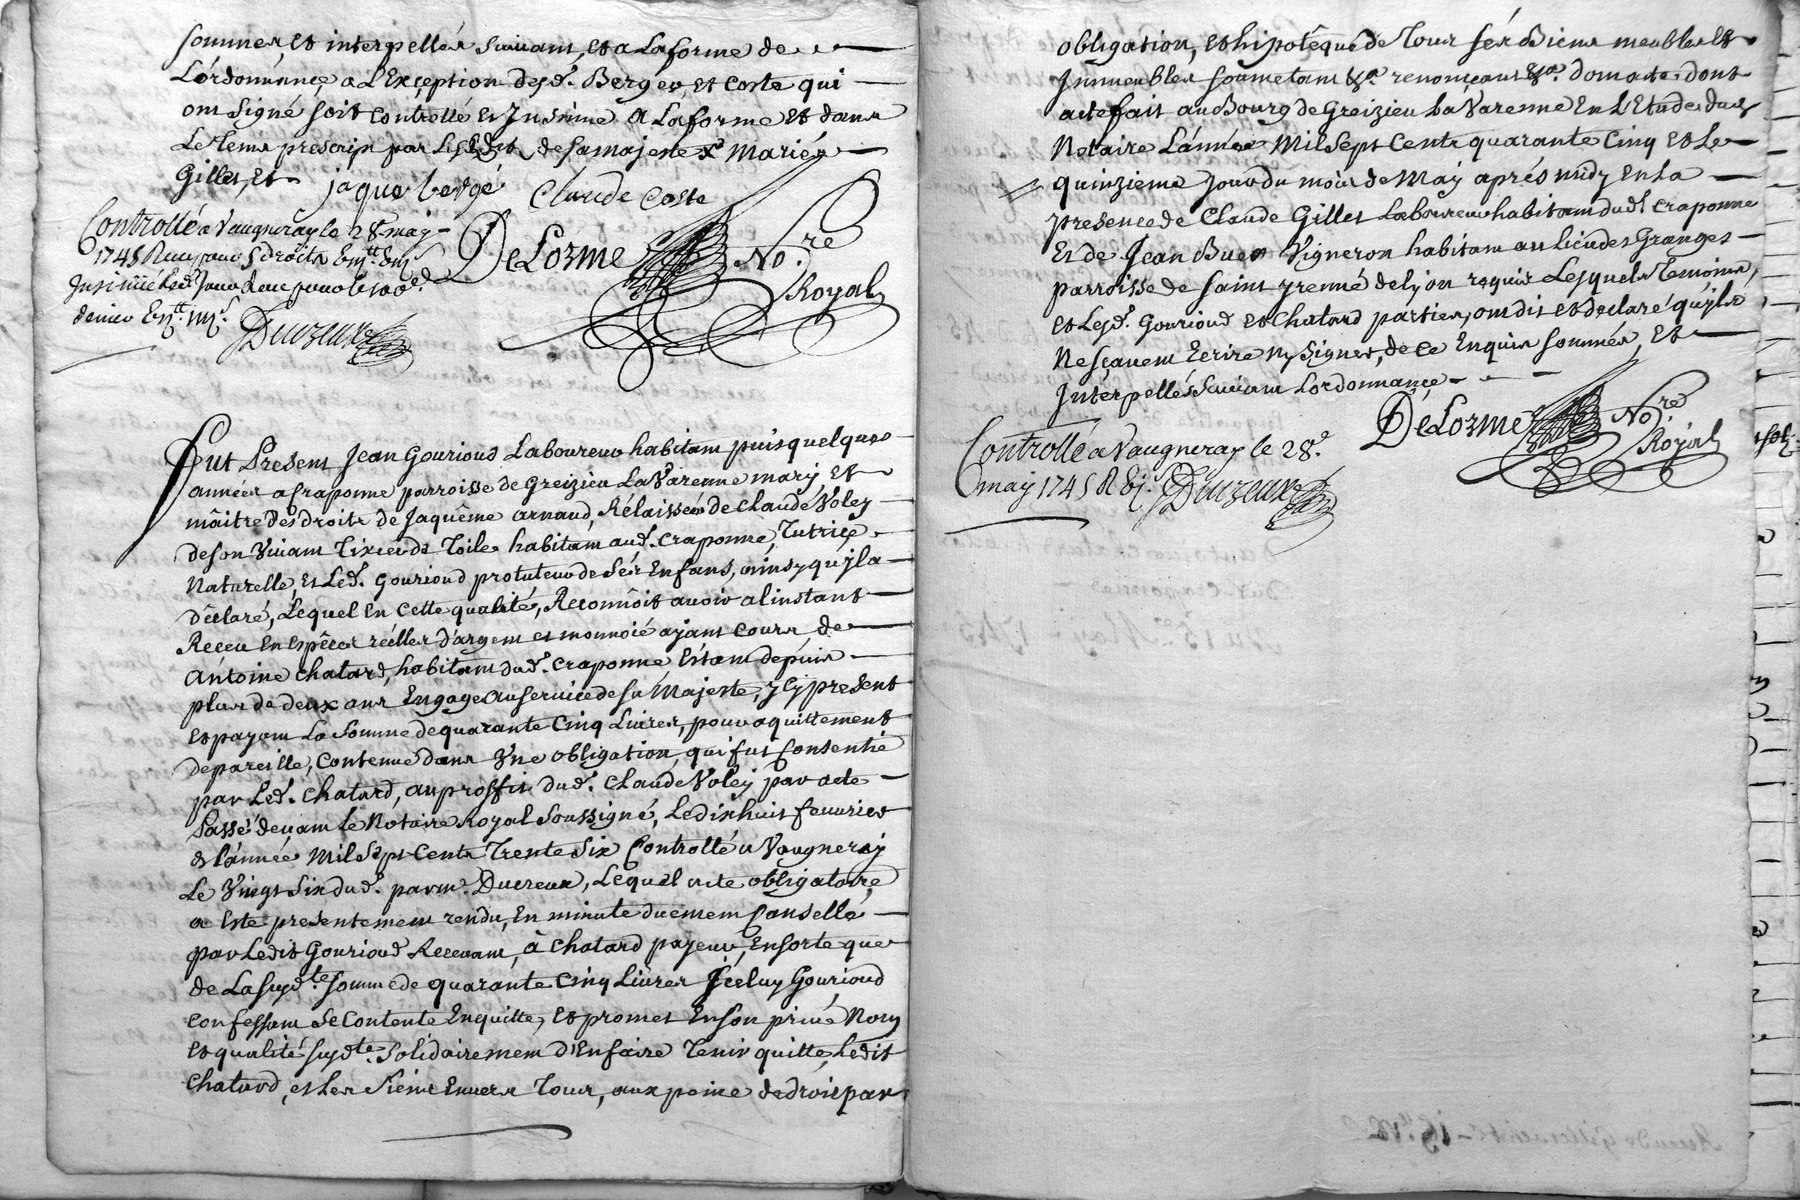 sommer, et interpeller suivant, et a la forme de
L'ordonnance a L'Exception desd. Berger, et Coste qui
ont signé soit Controllé et Insinué a La forme et dans
Le tems prescrip par Les Edits de sa majeste X Mariés
Gillet, et jaque bergé Claude Coste
DeLorme No.re Royal
Controllé a Vaugneray le 28 may
1745 Reçu pour droits
Insinué led. Jour Reçu pour le 100e.
denier
Ducreux
Fut Present Jean Gourioud Laboureur habitant puis quelques
années a Craponne parroisse de Greizieu La Varenne mary, et
mâitre des droits de Jaquême arnaud, Rélaissée de Claude Voley
de son Vivant Tixier de Toile habitant aud. Craponne, Tutrice
Naturelle, et Led. Gourioud protuteur de Sés Enfans, ainsy qu'jl a
Déclaré, Lequel En cette qualité, Reconnôit avoir a linstant
Receu En espêces réelles d'argent et monnoié ayant cours, de
Antoine Chatard, habitant dud. Craponne Estant depuis
plus de deux ans Engagé au service de sa Majeste, jcy present
et payant La Somme de quarante Cinq Livres, pour aquittement
de pareille, Contenue dans Vne obligation, qui fut Consentie
par Led. Chatard, au proffit dud. Claude Voley par acte
Passé devant le Notaire Royal Soussigné, Le dixhuit feuvrier
de l'année Mil Sept Cents Trente Six Controllé a Vaugneray
Le Vingt Six dud. par m. Ducreux, Lequel acte obligatoire
a Esté presentement rendu, En minute duement Cansellé
par Ledit Gourioud Recevant, à Chatard payeur, En sorte que
de La susd.te somme de quarante Cinq Livres Jceluy Gourioud
confessant Se Contente En quitte, et promet En son privé Nom
et qualité susd.te Solidairement d'En faire Tenir quitte Ledit
Chatard, et Les Siens Envers Tous, aux peine de droit par
obligation, et hipotêque de Tous sés Biens meubles et
Jmmeubles soumetant &a. renonçant &a. dont acte. dont
acte fait au Bourg de Greizieu La Varenne En L'Etude dud.
Notaire L'année Mil Sept Cents quarante Cinq et Le
quinzieme Jour du môis de May aprés midy En la
presence de Claude Gillet Laboureur habitant dud. Craponne
Et de Jean Buer Vigneron habitant au lieu des Granges
parroisse de Saint jrenné de lyon requis Lesquels Temoins,
et Lesd. Gourioud et Chatard parties, ont dit et declaré qu'jls
Ne sçavent Ecrire Ny Signer, de ce Enquis sommés, Et
Interpellés Suivant Lordonnance
DeLorme No.re Royal
Controllé a Vaugneray le 28e.
may 1745 R
Ducreux